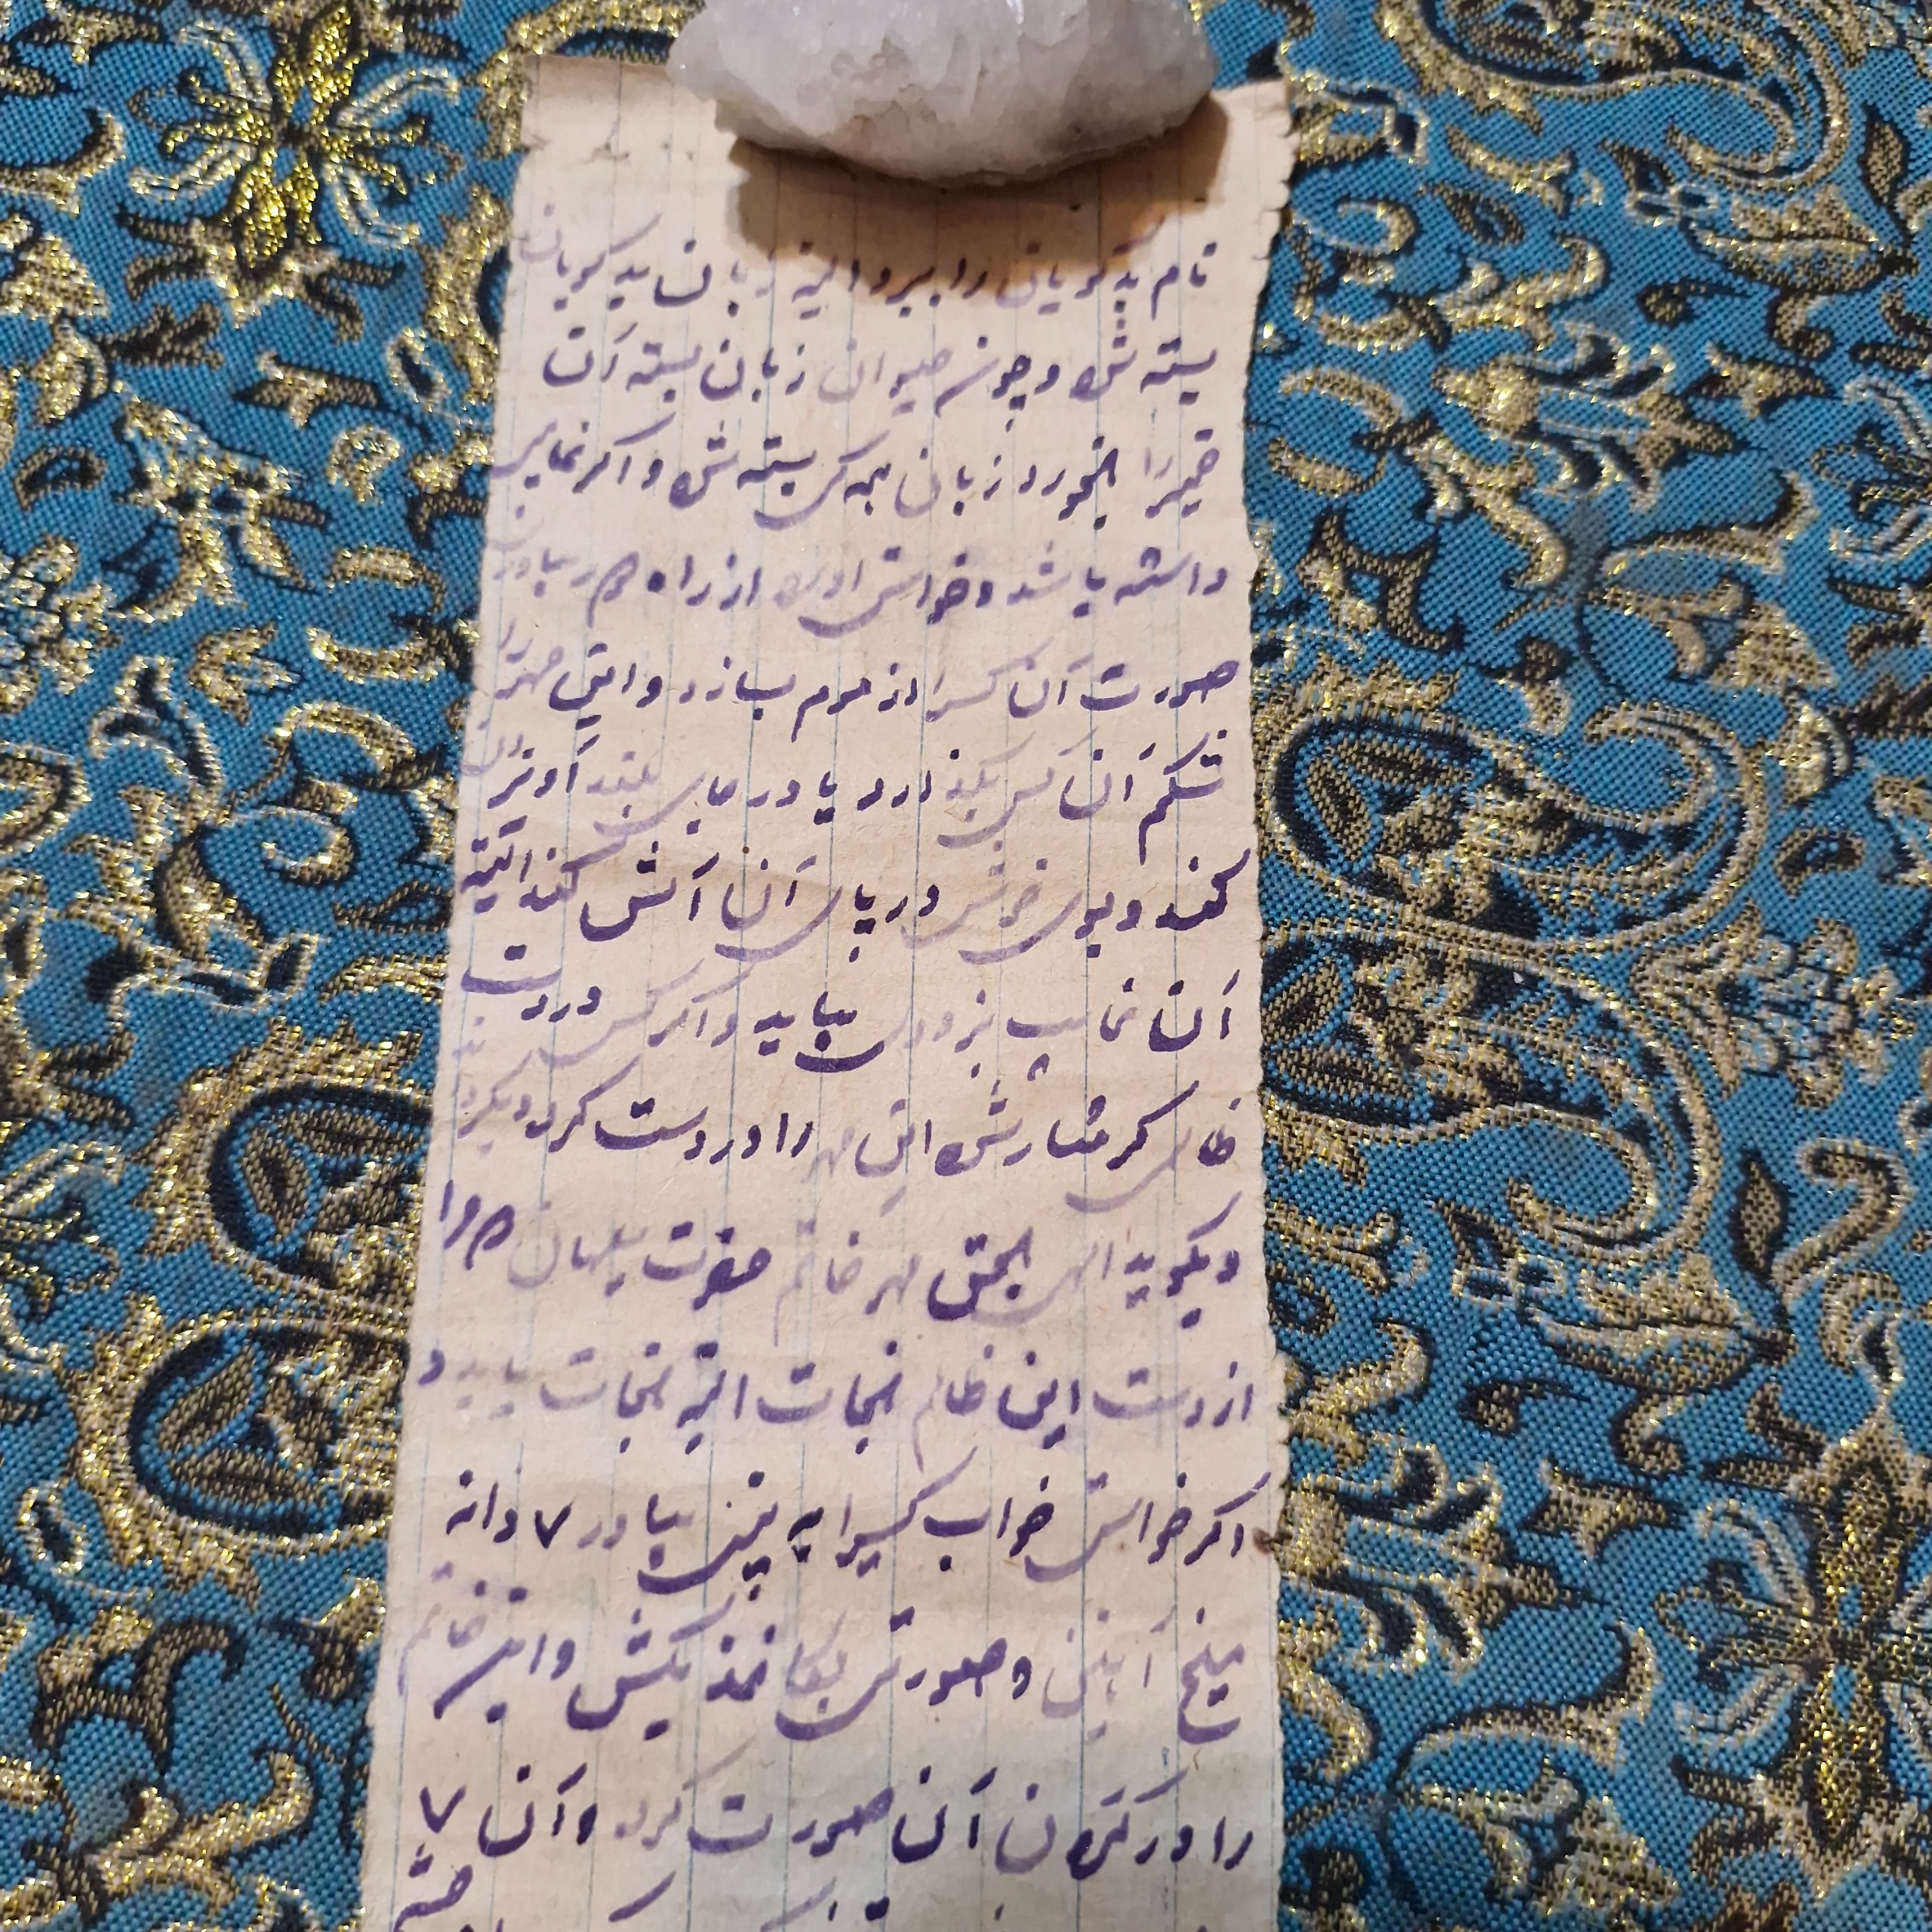 نام بدگویان را ببرد البته زبان بدگویان
بسته شود و چون حیوان زبان بسته آن
خمیر را بخورد زبان همه کس بسته شود و اگر غایبی
داشته باشد و خواستی او را از راه دور بیاورد
صورت آن کسرا از موم بسازد و این مهر را
شکم آن کس بگذارد یا در جای بلند آویزان
کند و بوی خوش در پای آن آتش کند البته
آن غایب بزودی بیاید و اگر کسی در دست
ظالمی گرفتار شود این مهر را در دست کرد
و بگوید الهی بحق مهر خاتم حضرت سلیمان مرا
از دست این ظالم نجات البته نجات یابد و
اگر خواستی خواب کسیرا به بندی بیاور ۷ دانه
میخ آهنین و صورتی بکاغذ بکش و این خاتم
را در آن صورت کرد و آن ۷